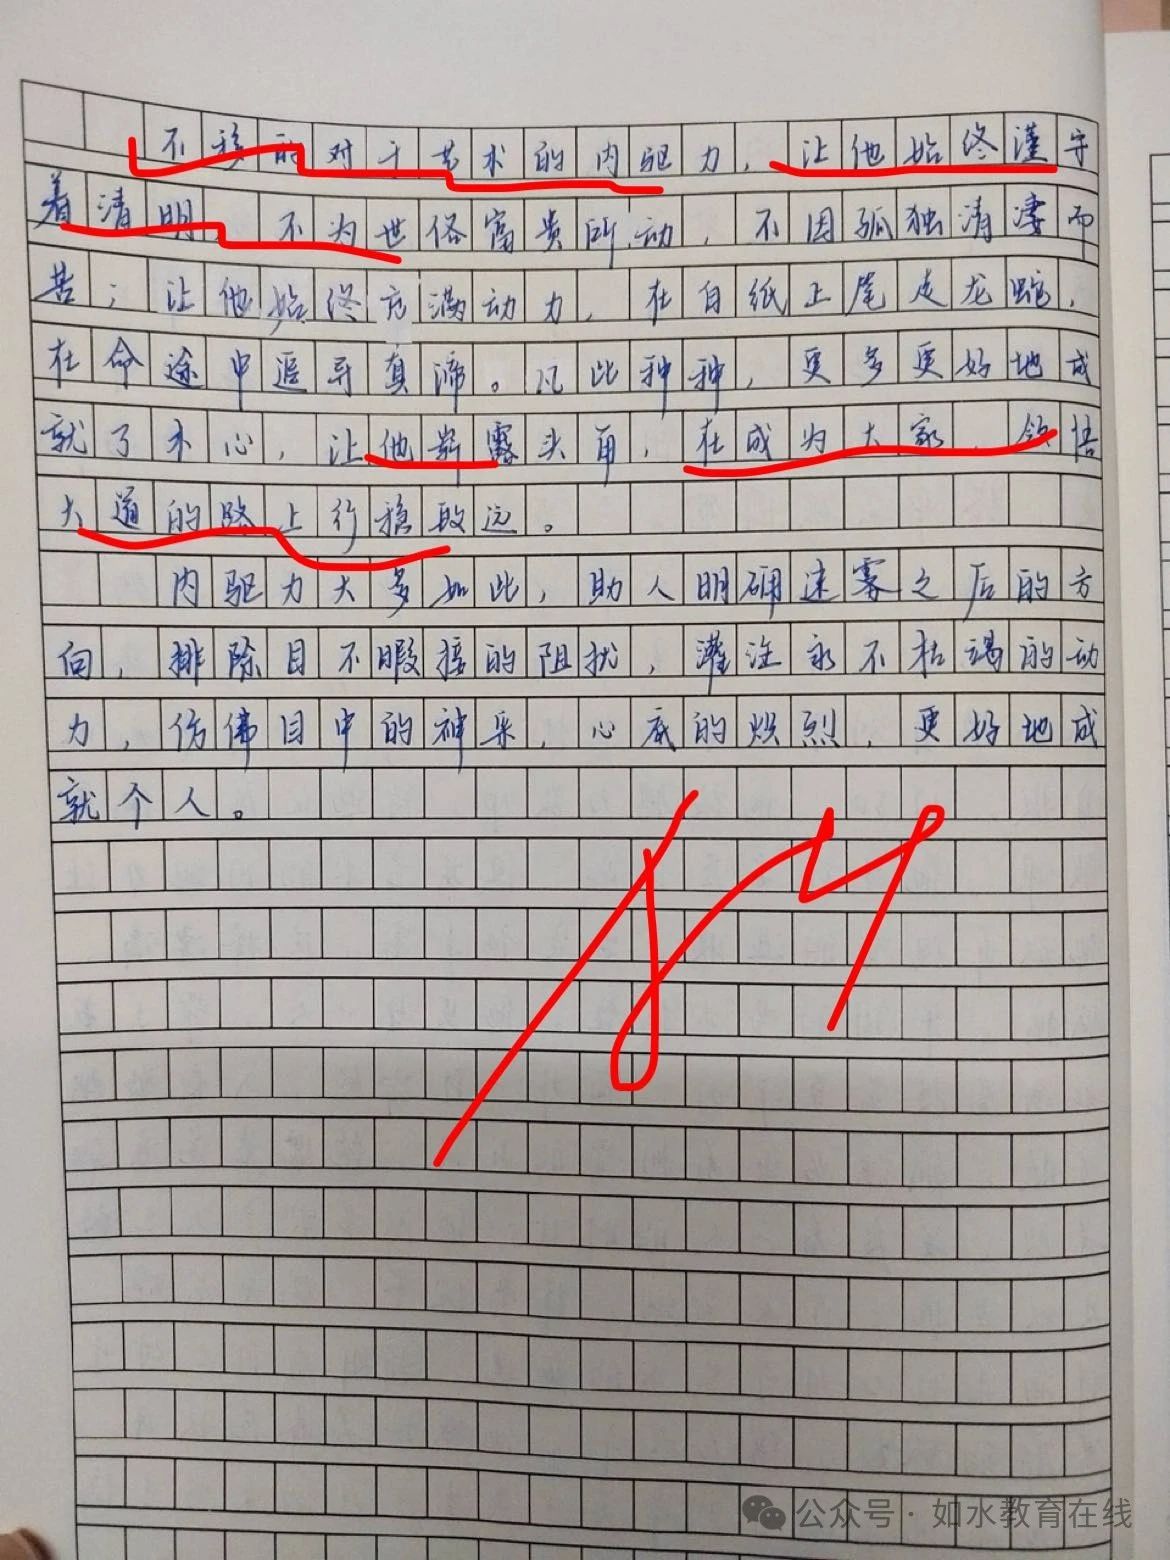 不移的对于艺术的内驱力，让他始终谨守
着清明，不为世俗富贵所动，不因孤独清凄而
苦；让他始终充满动力，在白纸上尾走龙蛇，
在命途中追寻真谛。凡此种种，更多更好地成
就了本心，让他崭露头角，在成为大家、领悟
大道的路上行稳致远。
内驱力大多如此，助人明确迷雾之后的方
向，排除目不暇接的阻扰，灌注永不枯竭的动
力，仿佛目中的神采，心底的炽烈，更好地成
就个人。
公众号·如水教育在线